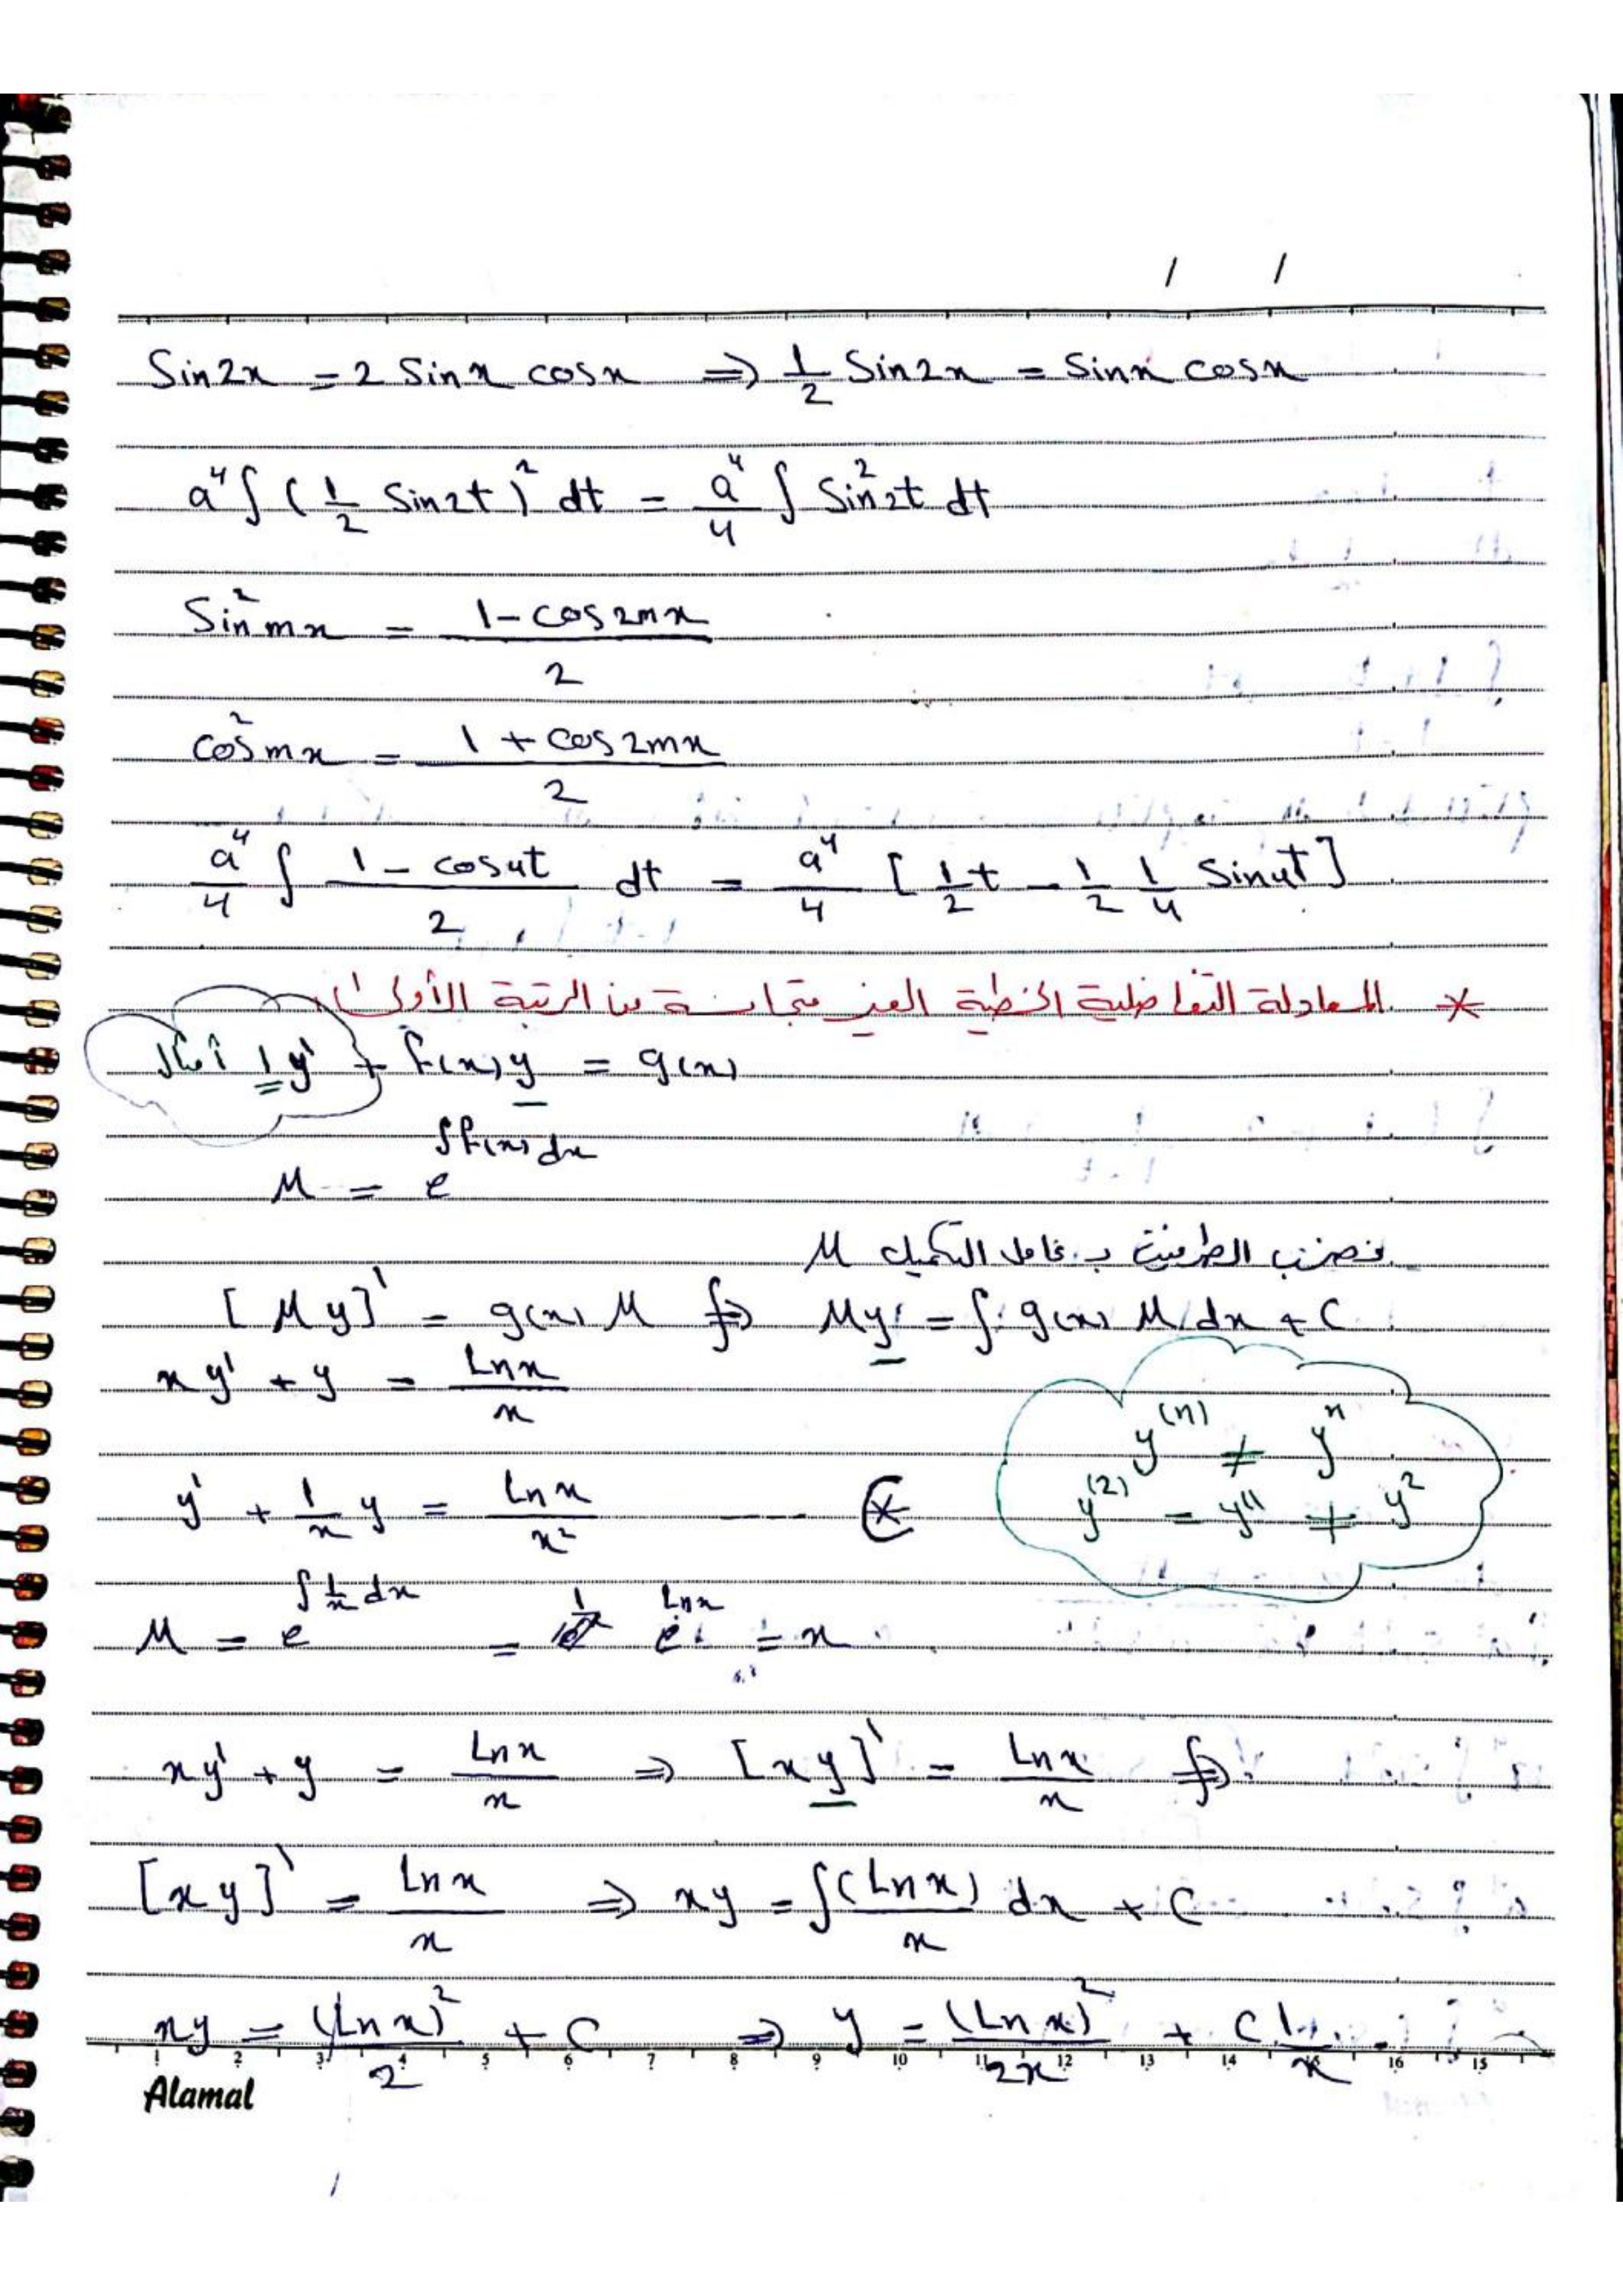 / /
Sin2x = 2 Sinx cosx ⇒ 1/2 Sin2x = Sinx cosx
a⁴ ∫ (1/2 Sin2t)² dt = a⁴/4 ∫ Sin²2t dt
Sin²mx = (1 - cos2mx)/2
cos²mx = (1 + cos2mx)/2
a⁴/4 ∫ (1 - cos4t)/2 dt = a⁴/4 [1/2 t - 1/2 1/4 Sin4t]
* المعادلة التفاضلية الخطية الغير متجانسة من الرتبة الأولى
أمثال 1 y' + f(x) y = g(x)
M = e^∫f(x)dx
نضرب الطرفين بـ عامل التكميل M
[My]' = g(x) M ⇒ My = ∫ g(x) M dx + C
xy' + y = Lnx/x
y⁽ⁿ⁾ ≠ yⁿ
y⁽²⁾ = y'' ≠ y²
y' + 1/x y = Lnx/x² ---- *
M = e^∫1/x dx = e^Lnx = x
xy' + y = Lnx/x ⇒ [xy]' = Lnx/x ⇒
[xy]' = Lnx/x ⇒ xy = ∫ (Lnx)/x dx + C
xy = (Lnx)²/2 + C ⇒ y = (Lnx)²/2x + C 1/x
1 2 3 4 5 6 7 8 9 10 11 12 13 14 15 16 15
Alamal